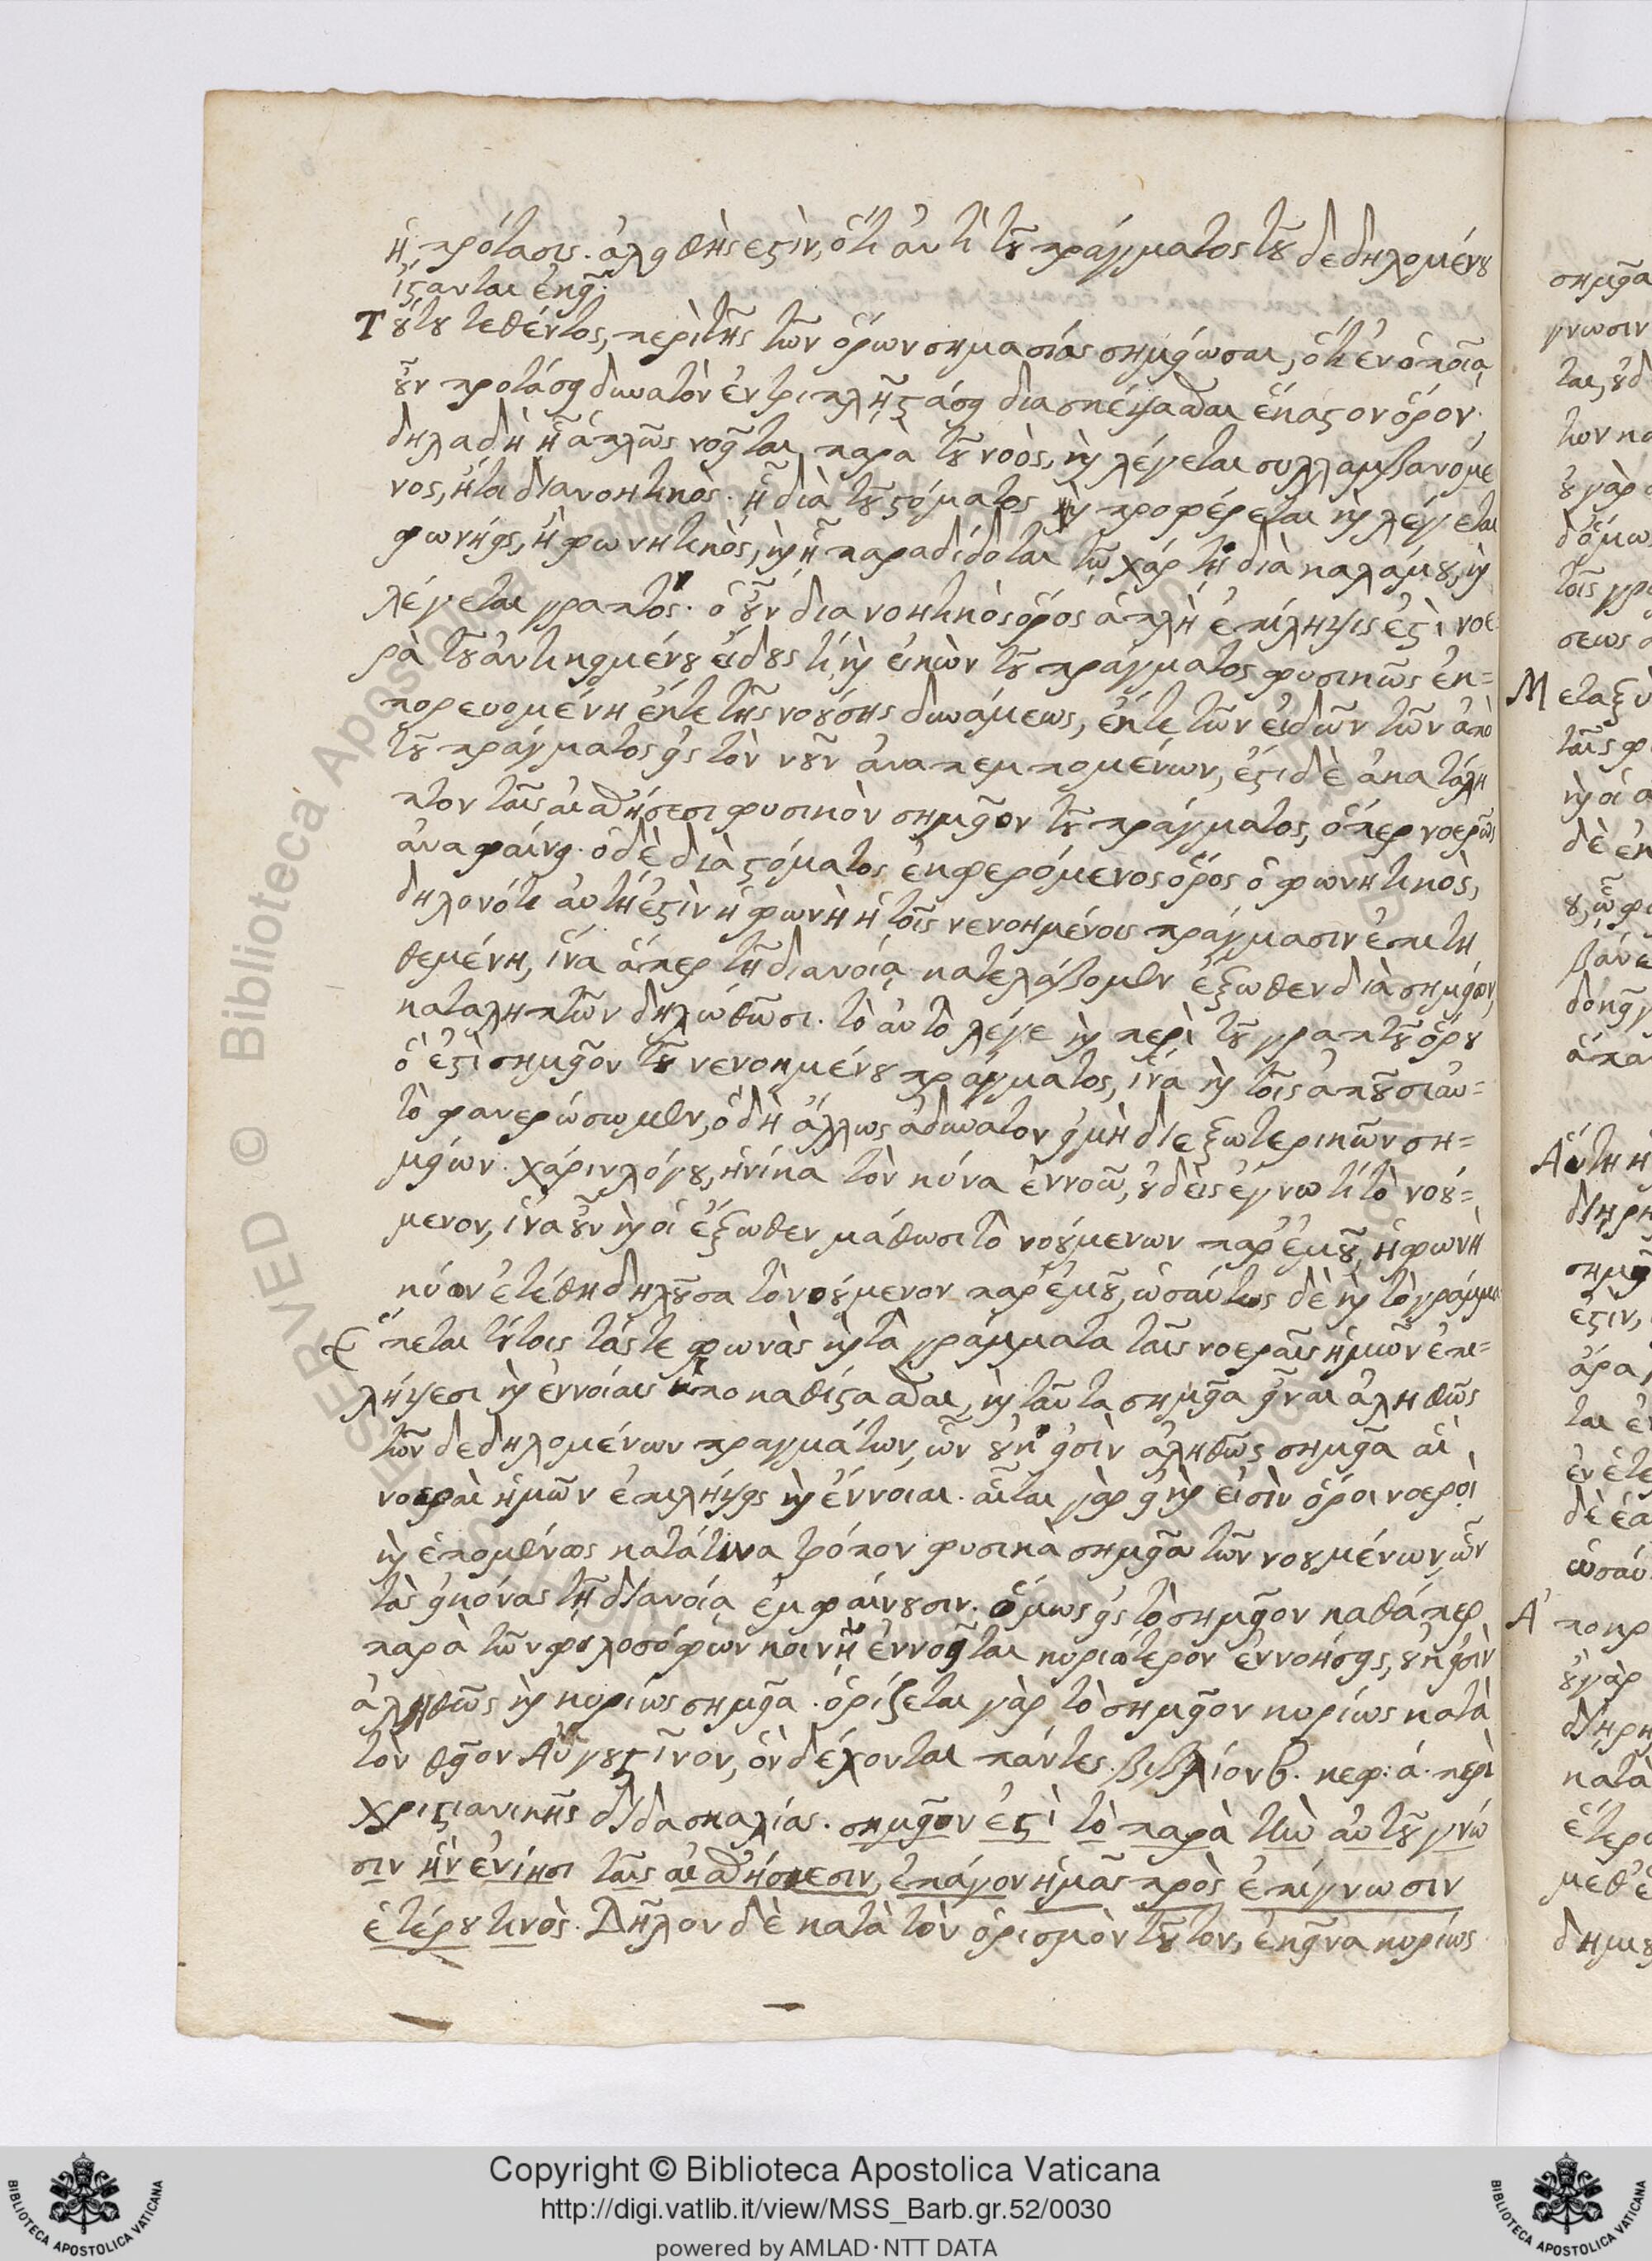 ἡ πρότασις. ἀληθὴς ἐστὶν, ὅτι ἀντὶ τοῦ πράγματος τοῦ δεδηλομένου
ἵστανται ἐκεῖ.
Τούτου τεθέντος, περὶ τῆς τῶν ὅρων σημασίας σημείωσαι, ὅτι ἐν ὁποίᾳ
οὖν προτάσει δυνατὸν ἐν τριπλῇ στάσει διασκέψασθαι ἕκαστον ὅρον.
δηλαδὴ ἢ ἁπλῶς νοεῖται παρὰ τοῦ νοός, καὶ λέγεται συλλαμβανόμε
νος, ἤτοι διανοητικὸς. ἢ διὰ τοῦ στόματος καὶ προφέρεται καὶ λέγεται
φωνήεις, ἢ φωνητικός, καὶ ἢ παραδίδοται τῷ χάρτῃ διὰ καλάμου, καὶ
λέγεται γραπτός. ὁ οὖν διανοητικὸς ὅρος ἁπλὴ ἐπίληψις ἐστὶ νοε
ρὰ τοῦ ἀντικειμένου εἴδους τί, καὶ εἰκὼν τοῦ πράγματος φυσικῶς ἐκ=
πορευομένη ἔκτε τῆς νοούσης δυνάμεως, ἔκτε τῶν εἰδῶν τῶν ἀπὸ
τοῦ πράγματος εἰς τὸν νοῦν ἀναπεμπομένων, ἔστι δὲ ἀκατάλη
πτον ταῖς αἰσθήσεσι φυσικὸν σημεῖον τοῦ πράγματος, ὅπερ νοερῶς
ἀναφαίνει. ὁ δὲ διὰ στόματος ἐκφερόμενος ὅρος ὁ φωνητικὸς,
δηλονότι αὐτή ἐστὶν ἡ φωνὴ ἡ τοῖς νενοημένοις πράγμασιν ἐπιτη
θεμένη, ἵνα ἅπερ τῇ διανοίᾳ κατελάβομεν ἔξωθεν διὰ σημείων
καταληπτῶν δηλωθῶσι. τὸ αὐτὸ λέγε καὶ περὶ τοῦ γραπτοῦ ὅρου
ὅ ἐστὶ σημεῖον τοῦ νενοημένου πράγματος, ἵνα καὶ τοῖς ἀποῦσι αὐ=
τὸ φανερώσωμεν, ὃ δὴ ἄλλως ἀδύνατον εἰμὴ δι ἐξωτερικῶν ση=
μείων. χάριν λόγου, ἡνίκα τὸν κύνα ἐννοῶ, οὐδεὶς ἔγνω τί τὸ νοού=
μενον, ἵνα οὖν καὶ οἱ ἔξωθεν μάθωσι τὸ νοούμενων παρ' ἐμοῦ, ἡ φωνὴ
κύων ἐτέθη δηλοῦσα τὸ νοούμενον παρ' ἐμοῦ, ὡσαύτως δὲ καὶ τὸ γράμμα
Ἕπεται τούτοις τάς τε φωνὰς καὶ τὰ γράμματα ταῖς νοεραῖς ἡμῶν ἐπι=
λήψεσι καὶ ἐννοίαις ὑποκαθίστασθαι, καὶ ταῦτα σημεῖα εἶναι ἀληθῶς
τῶν δεδηλομένων πραγμάτων, ὧν οὐκ εἰσὶν ἀληθῶς σημεῖα αἱ
νοεραὶ ἡμῶν ἐπιλήψεις καὶ ἔννοιαι. αὗται γὰρ εἰ καὶ εἰσὶν ὅροι νοεροὶ
καὶ ἑπομένως κατά τινα τρόπον φυσικὰ σημεῖα τῶν νοουμένων, ὧν
τὰς εἰκόνας τῇ διανοίᾳ ἐμφαίνουσιν. ὅμως εἰς τὸ σημεῖον καθάπερ
παρὰ τῶν φιλοσόφων κοινῇ ἐννοεῖται κυριότερον ἐννοήσεις, οὐκ εἰσὶν
ἀληθῶς καὶ κυρίως σημεῖα. ὁρίζεται γὰρ τὸ σημεῖον κυρίως κατὰ
τὸν θεῖον Αὐγουστῖνον, ὃν δέχονται πάντες. βιβλίον β. κεφ: ά. περὶ
χριστιανικῆς διδασκαλίας. σημεῖον ἐστὶ τὸ παρὰ τὴν αὐτοῦ γνῶ
σιν ἣν ἐνίησι ταῖς αἰσθήσεσιν, ἐπάγον ἡμᾶς πρὸς ἐπίγνωσιν
ἑτέρου τινός. Δῆλον δὲ κατὰ τὸν ὁρισμὸν τοῦτον, ἐκεῖνα κυρίως
Copyright © Biblioteca Apostolica Vaticana
http://digi.vatlib.it/view/MSS_Barb.gr.52/0030
powered by AMLAD·NTT DATA